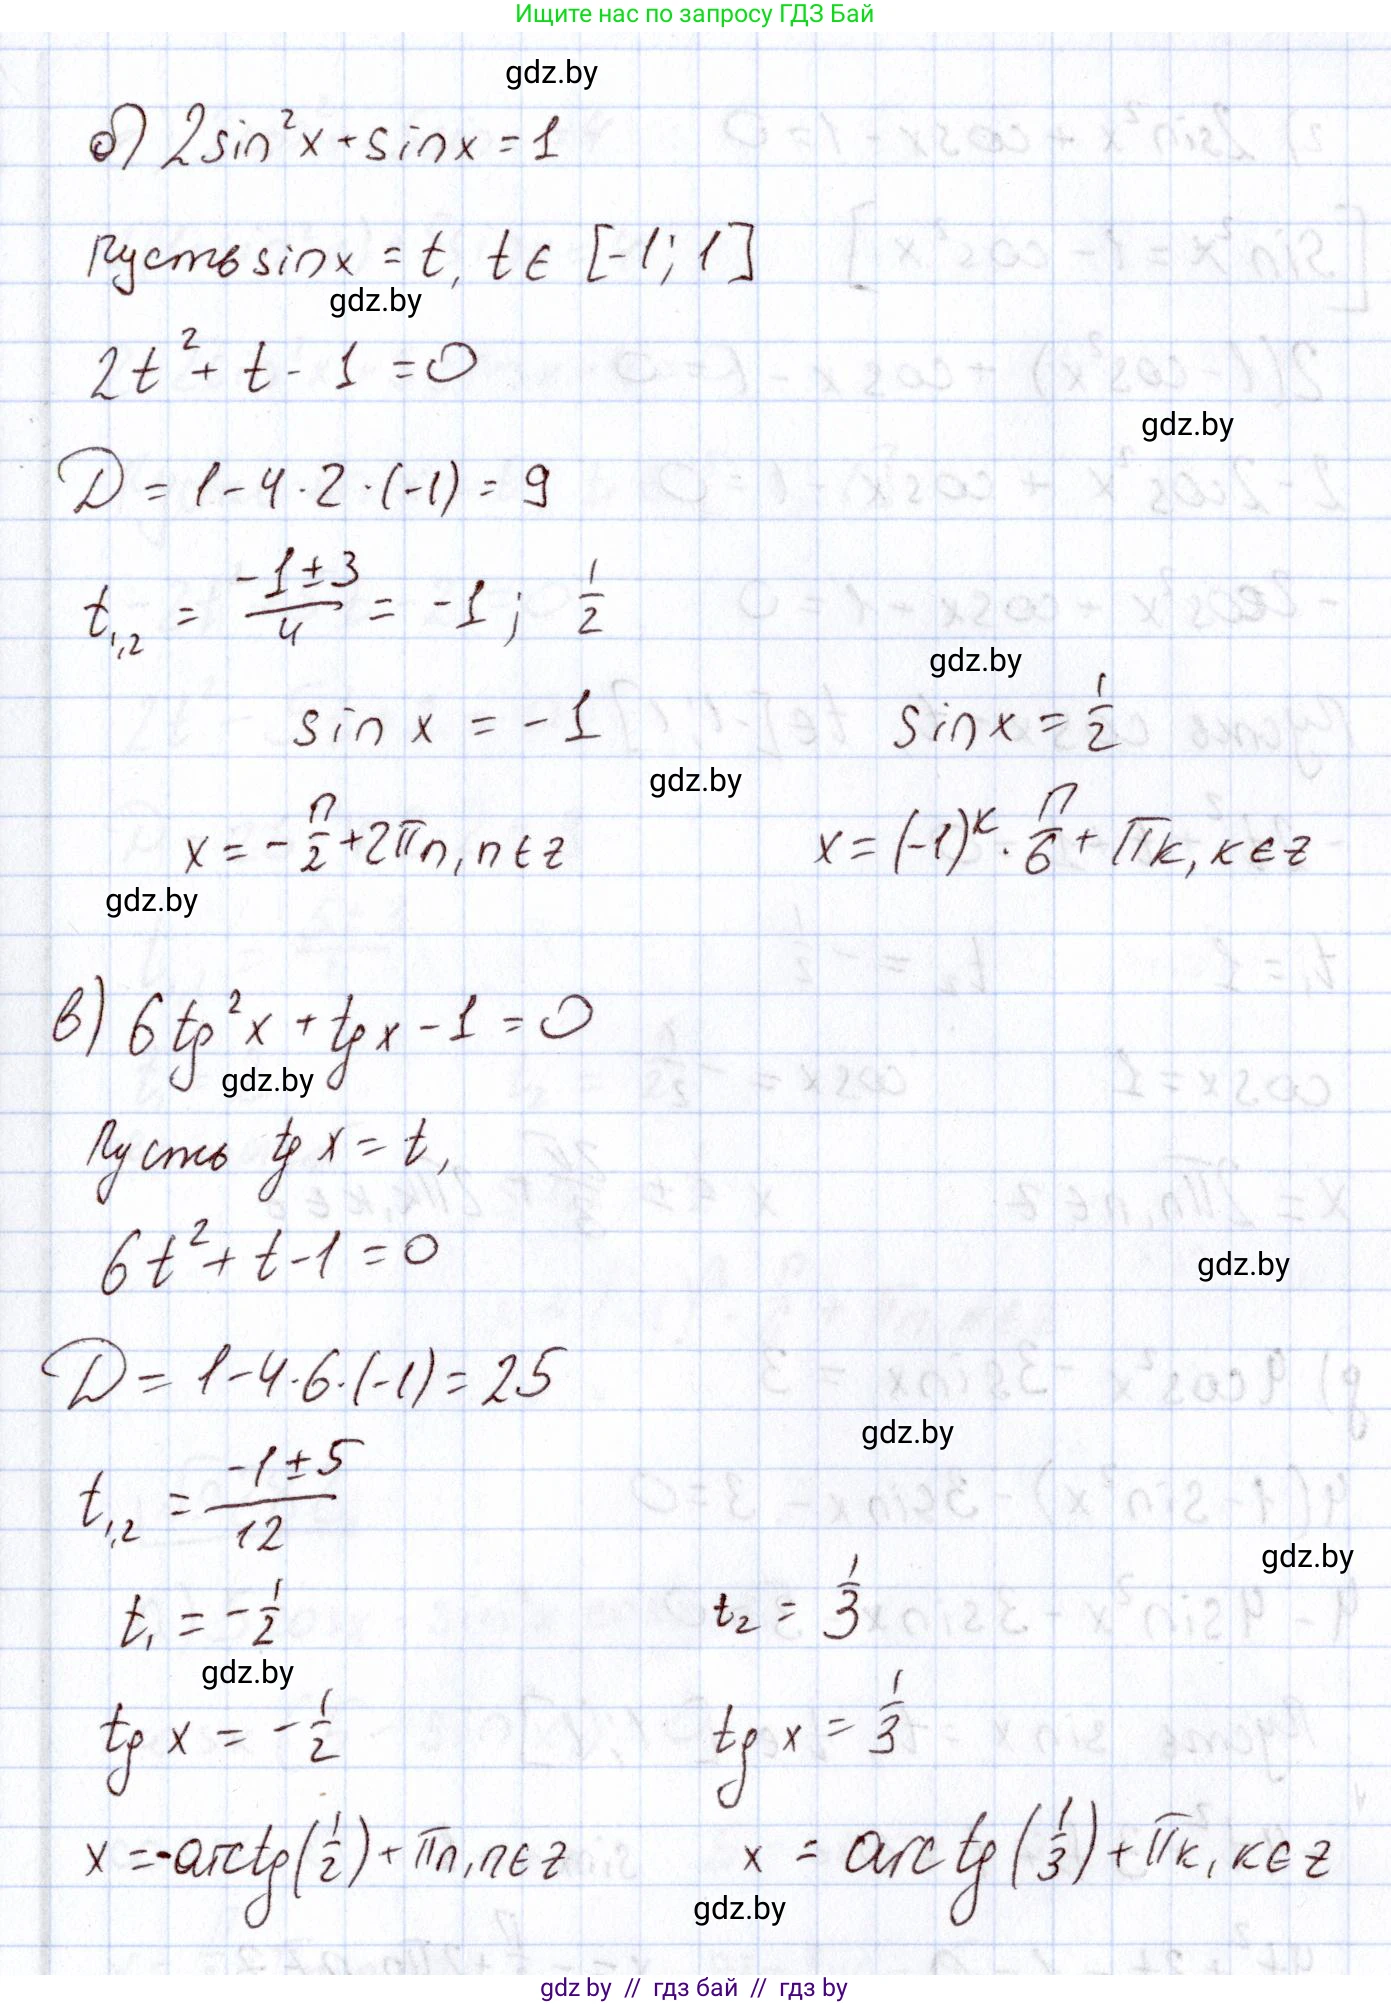 Ищите нас по запросу ГДЗ Бай
gdz.by
б) 2sin²x + sinx = 1
Пусть sinx = t, t ∈ [-1; 1]
gdz.by
2t² + t - 1 = 0
gdz.by
D = 1 - 4·2·(-1) = 9
t₁,₂ = (-1±3)/4 = -1; 1/2
gdz.by
sin x = -1 sin x = 1/2
gdz.by
x = -π/2 + 2πn, n ∈ z x = (-1)ᵏ · π/6 + πk, k ∈ z
gdz.by
в) 6tg²x + tgx - 1 = 0
gdz.by
Пусть tg x = t,
6t² + t - 1 = 0
gdz.by
D = 1 - 4·6·(-1) = 25
gdz.by
t₁,₂ = (-1±5)/12
gdz.by
t₁ = -1/2 t₂ = 1/3
gdz.by
tg x = -1/2 tg x = 1/3
x = -arctg(1/2) + πn, n ∈ z x = arctg(1/3) + πk, k ∈ z
gdz.by
gdz by // гдз бай // гдз by